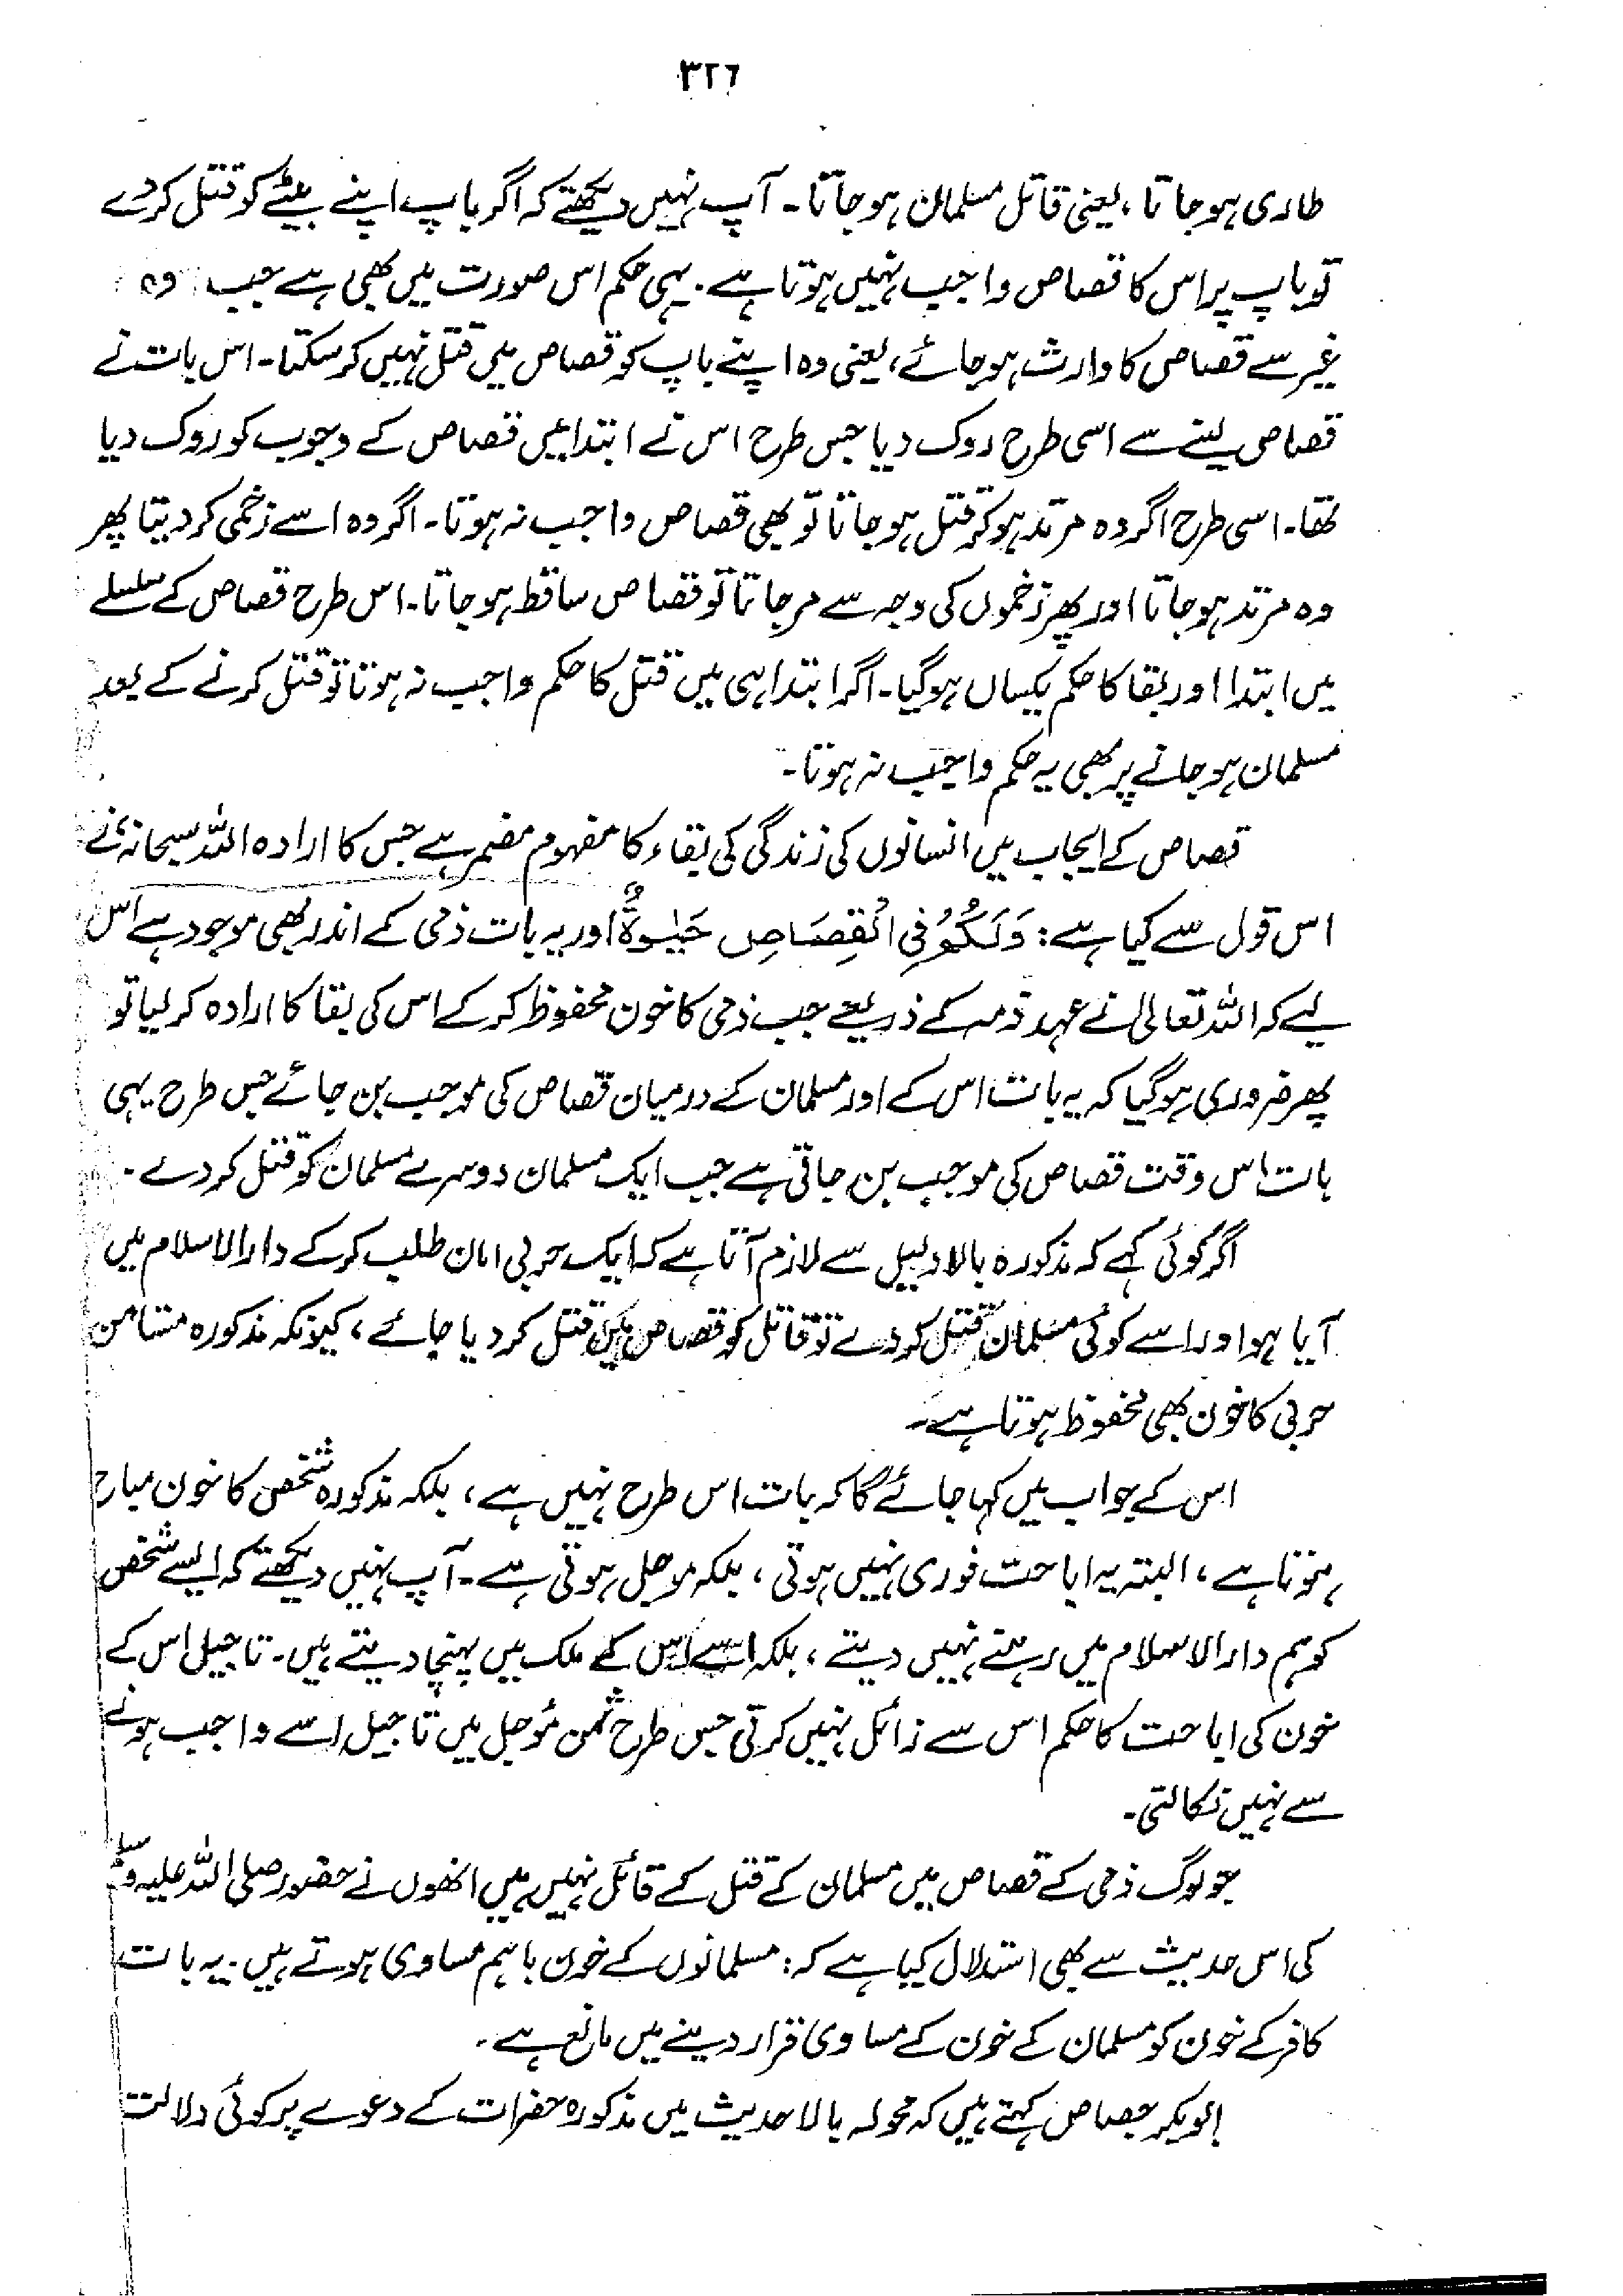 ۳۲۶
طاری ہو جاتا، یعنی قاتل مسلمان ہو جاتا۔ آپ نہیں دیکھتے کہ اگر باپ اپنے بیٹے کو قتل کر دے
تو باپ پر اس کا قصاص واجب نہیں ہوتا ہے۔ یہی حکم اس صورت میں بھی ہے جب وہ
غیر سے قصاص کا وارث ہو جائے، یعنی وہ اپنے باپ کو قصاص میں قتل نہیں کر سکتا۔ اس بات نے
قصاص لینے سے اسی طرح روک دیا جس طرح اس نے ابتدا میں قصاص کے وجوب کو روک دیا
تھا۔ اسی طرح اگر وہ مرتد ہو کر قتل ہو جاتا تو بھی قصاص واجب نہ ہوتا۔ اگر وہ اسے زخمی کر دیتا پھر
وہ مرتد ہو جاتا اور پھر زخموں کی وجہ سے مر جاتا تو قصاص ساقط ہو جاتا۔ اس طرح قصاص کے سلسلے
میں ابتدا اور بقا کا حکم یکساں ہو گیا۔ اگر ابتدا ہی میں قتل کا حکم واجب نہ ہوتا تو قتل کرنے کے بعد
مسلمان ہو جانے پر بھی یہ حکم واجب نہ ہوتا۔
قصاص کے ایجاب میں انسانوں کی زندگی کی بقاء کا مفہوم مضمر ہے جس کا ارادہ اللہ سبحانہ نے
اس قول سے کیا ہے: وَلَكُمْ فِي الْقِصَاصِ حَيٰوةٌ اور یہ بات ذمی کے اندر بھی موجود ہے اس
لیے کہ اللہ تعالیٰ نے عہد ذمہ کے ذریعے جب ذمی کا خون محفوظ کر کے اس کی بقا کا ارادہ کر لیا تو
پھر ضروری ہو گیا کہ یہ بات اس کے اور مسلمان کے درمیان قصاص کی موجب بن جائے جس طرح یہی
بات اس وقت قصاص کی موجب بن جاتی ہے جب ایک مسلمان دوسرے مسلمان کو قتل کر دے۔
اگر کوئی کہے کہ مذکورہ بالا دلیل سے لازم آتا ہے کہ ایک حربی امان طلب کر کے دارالاسلام میں
آیا ہو اور اسے کوئی مسلمان قتل کر دے تو قاتل کو قصاص میں قتل کر دیا جائے، کیونکہ مذکورہ مستامن
حربی کا خون بھی محفوظ ہوتا ہے۔
اس کے جواب میں کہا جائے گا کہ بات اس طرح نہیں ہے، بلکہ مذکورہ شخص کا خون مباح
ہوتا ہے، البتہ یہ اباحت فوری نہیں ہوتی، بلکہ مؤجل ہوتی ہے۔ آپ نہیں دیکھتے کہ ایسے شخص
کو ہم دارالاسلام میں رہنے نہیں دیتے، بلکہ اسے اس کے ملک میں پہنچا دیتے ہیں۔ تاجیل اس کے
خون کی اباحت کا حکم اس سے زائل نہیں کرتی جس طرح ثمن مؤجل میں تاجیل اسے واجب ہونے
سے نہیں نکالتی۔
جو لوگ ذمی کے قصاص میں مسلمان کے قتل کے قائل نہیں ہیں انھوں نے حضور صلی اللہ علیہ وسلم
کی اس حدیث سے بھی استدلال کیا ہے کہ: مسلمانوں کے خون باہم مساوی ہوتے ہیں۔ یہ بات
کافر کے خون کو مسلمان کے خون کے مساوی قرار دینے میں مانع ہے۔
ابوبکر جصاص کہتے ہیں کہ محولہ بالا حدیث میں مذکورہ حضرات کے دعوے پر کوئی دلالت